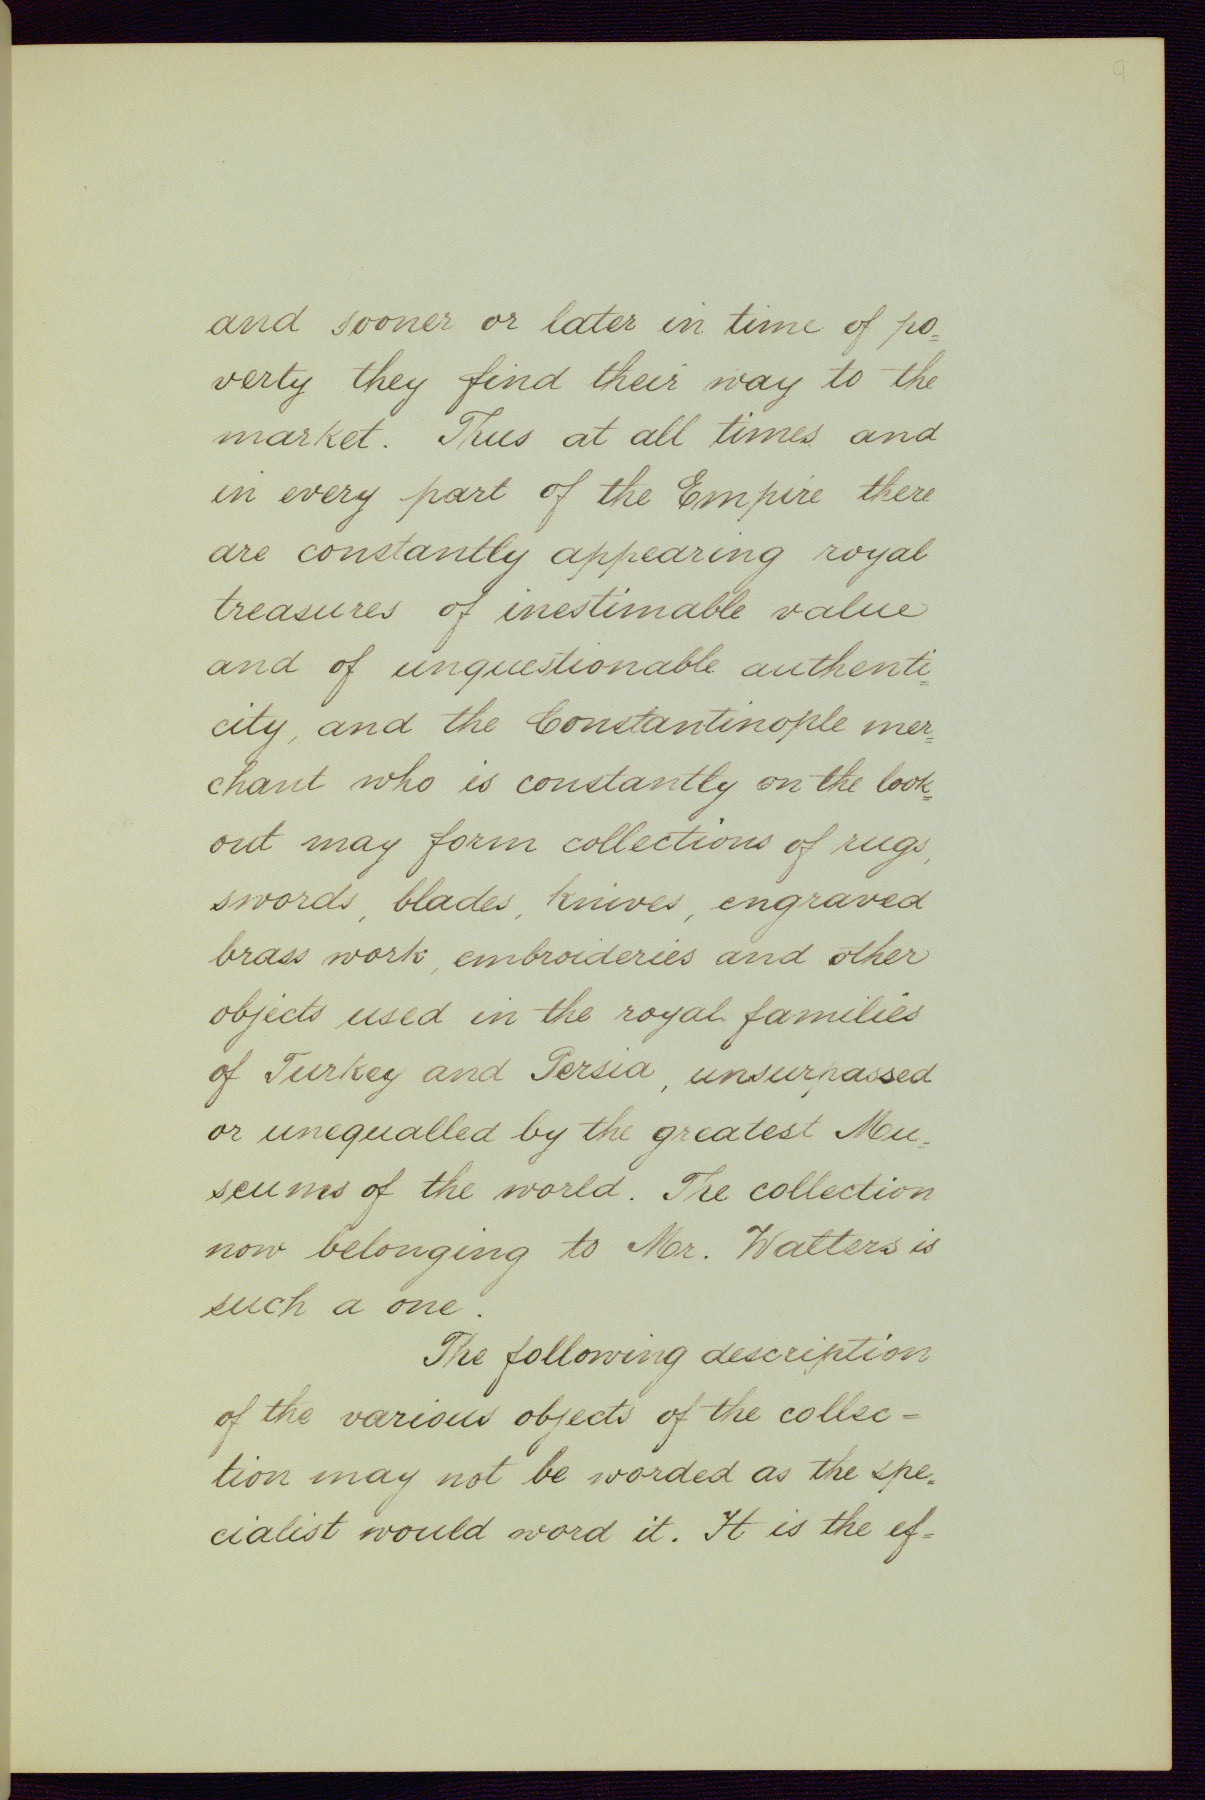 9
and sooner or later in time of po=
verty they find their way to the
market. Thus at all times and
in every part of the Empire there
are constantly appearing royal
treasures of inestimable value
and of unquestionable authenti=
city, and the Constantinople mer=
chant who is constantly on the look=
out may form collections of rugs,
swords, blades, knives, engraved
brass work, embroideries and other
objects used in the royal families
of Turkey and Persia, unsurpassed
or unequalled by the greatest Mu=
seums of the world. The collection
now belonging to Mr. Walters is
such a one.
The following description
of the various objects of the collec=
tion may not be worded as the spe=
cialist would word it. It is the ef=